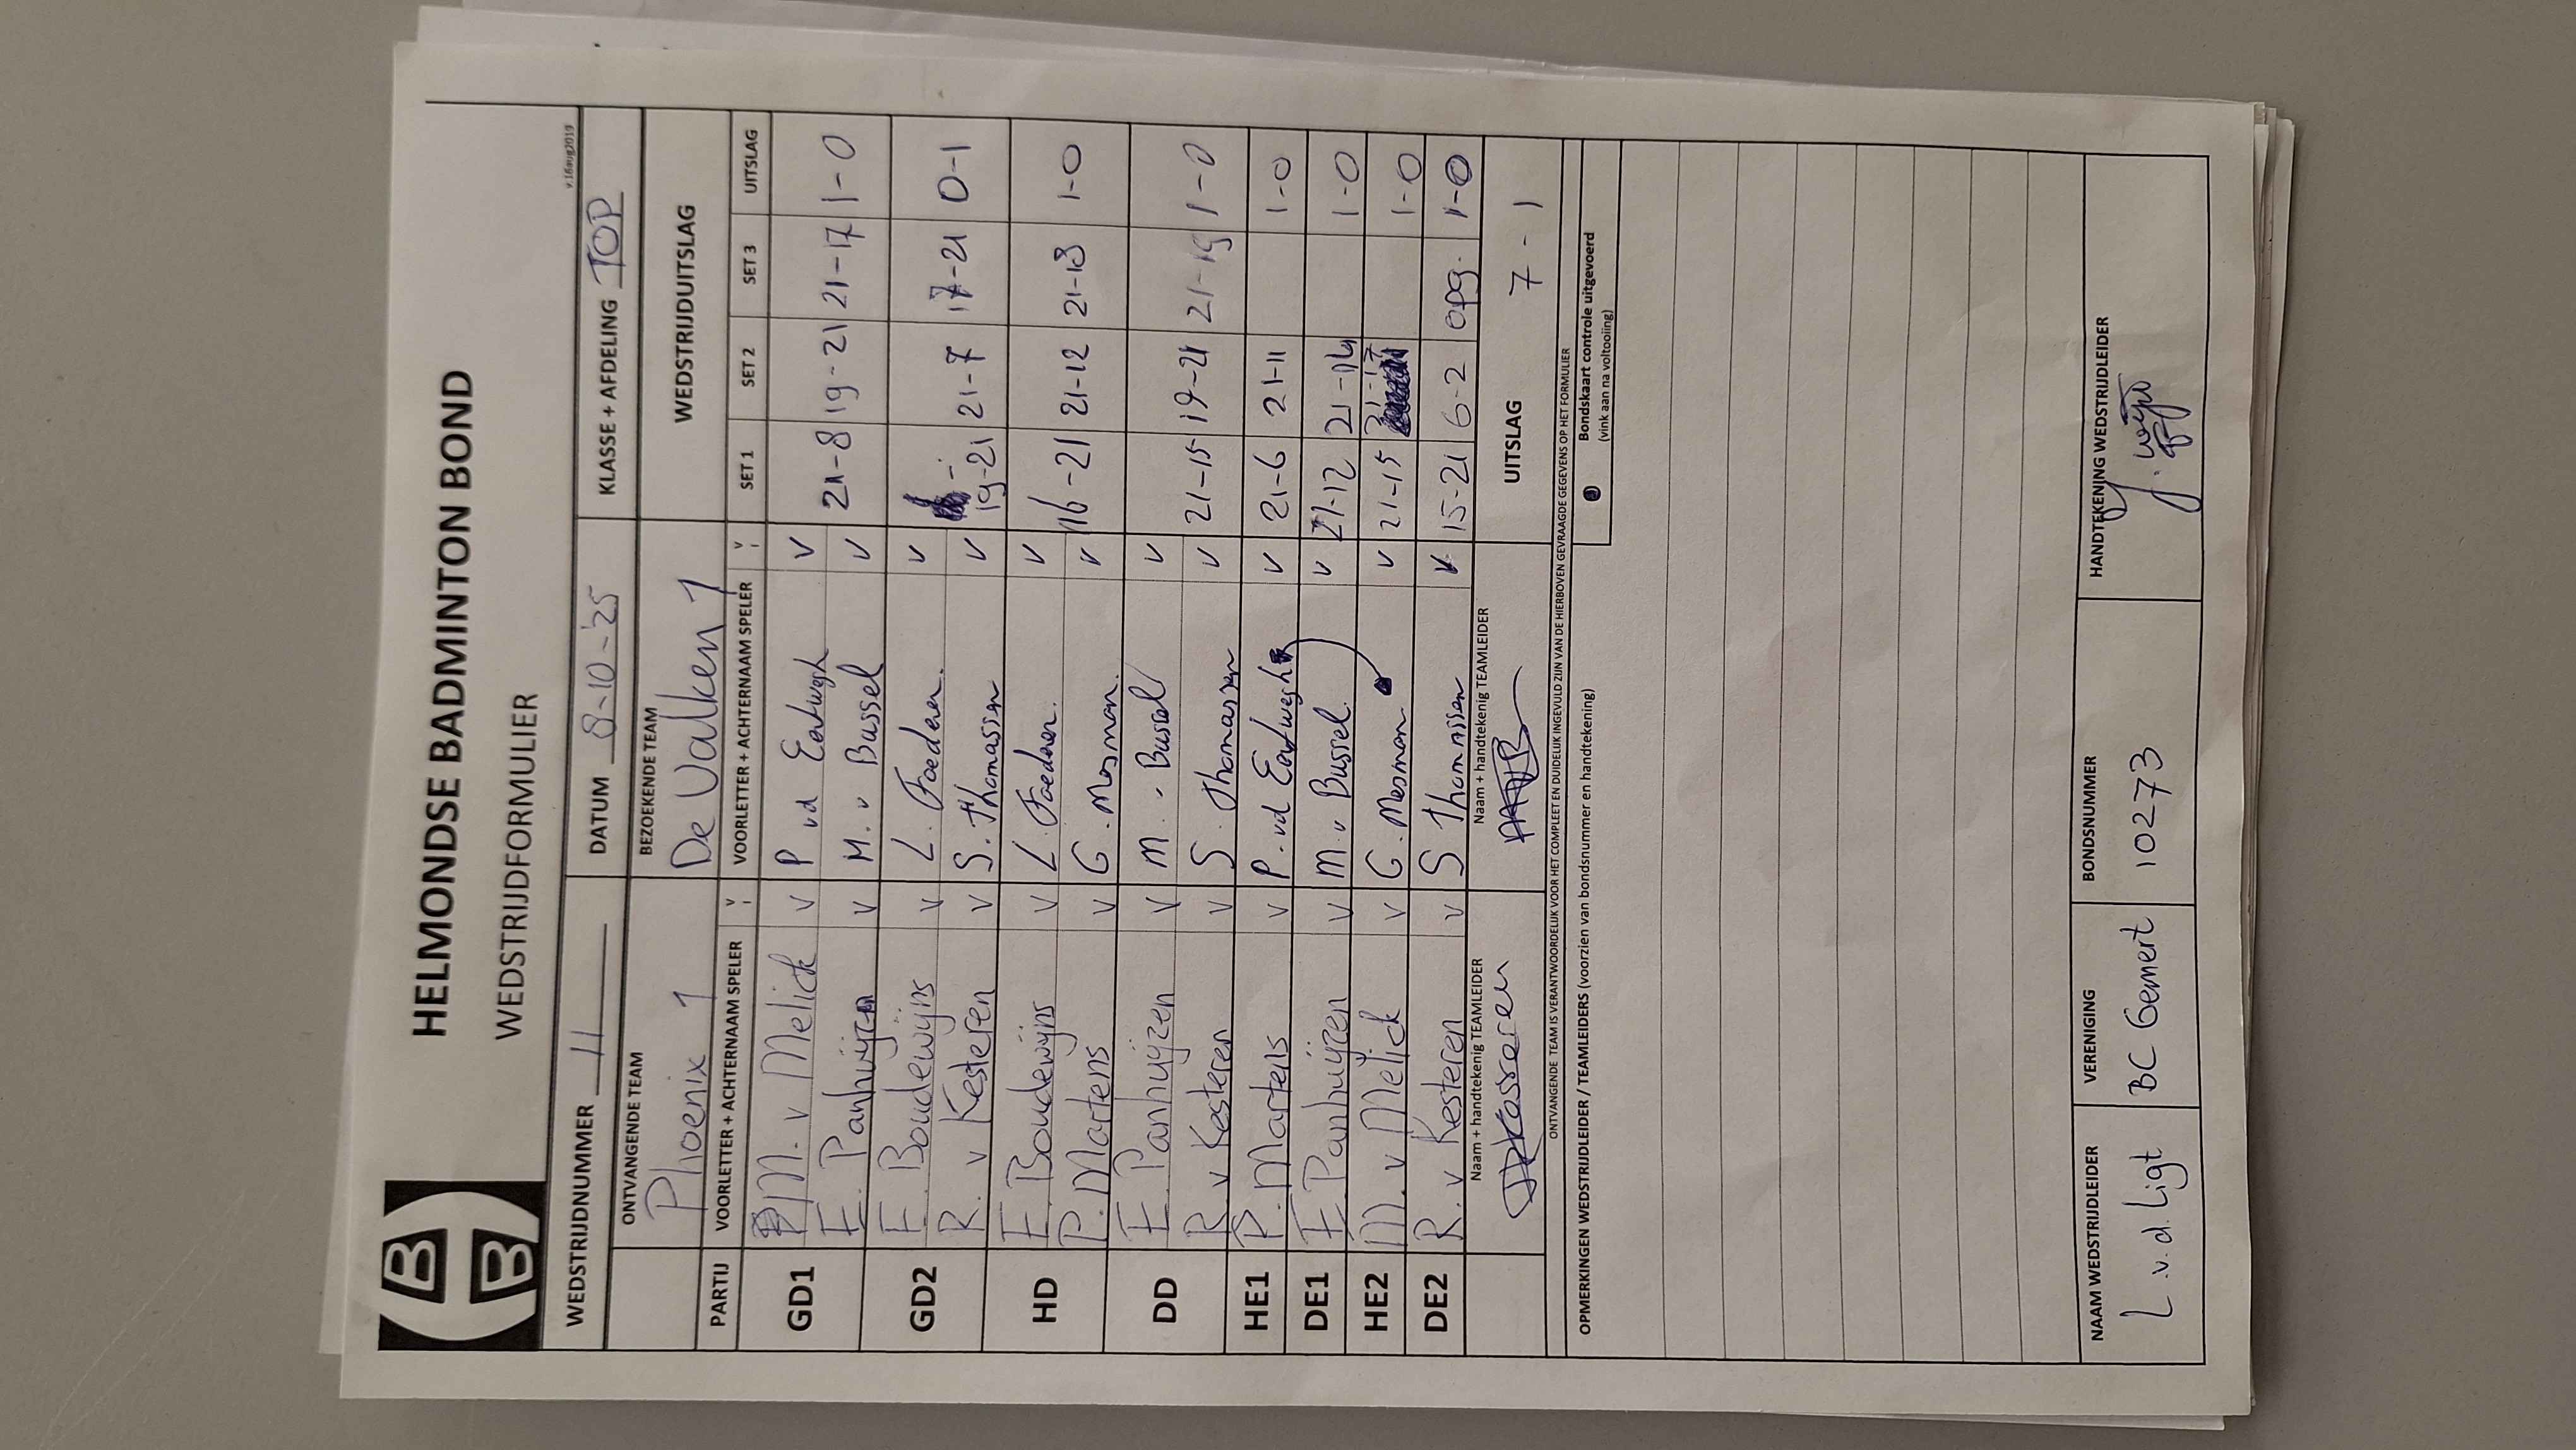 HELMONDSE BADMINTON BOND
WEDSTRIJDFORMULIER
v.16aug2019
WEDSTRIJDNUMMER 11 DATUM 8-10-'25 KLASSE + AFDELING TOP
ONTVANGENDE TEAM BEZOEKENDE TEAM WEDSTRIJDUITSLAG
Phoenix 1 De Valken 1
PARTIJ VOORLETTER + ACHTERNAAM SPELER V VOORLETTER + ACHTERNAAM SPELER V SET 1 SET 2 SET 3 UITSLAG
GD1 M. v Melick V P vd Eertwegh V 21-8 19-21 21-17 1-0
E. Panhuijzen V M. v Bussel V
GD2 E. Boudewijns V L. Foederer. V 19-21 21-7 17-21 0-1
R. v Kesteren V S. Thomassen V
HD E. Boudewijns V L. Foederer. V 16-21 21-12 21-18 1-0
P. Martens V G. Mesman. V
DD E. Panhuijzen V M. v Bussel V 21-15 19-21 21-19 1-0
R. v Kesteren V S Thomassen V
HE1 P. Martens V P. vd Eertwegh V 21-6 21-11 1-0
DE1 E. Panhuijzen V M. v Bussel. V 21-12 21-14 1-0
HE2 M. v Melick V G. Mesman V 21-15 21-17 1-0
DE2 R. v Kesteren V S Thomassen V 15-21 6-2 opg. 1-0
Naam + handtekenig TEAMLEIDER Naam + handtekenig TEAMLEIDER UITSLAG 7 - 1
ONTVANGENDE TEAM IS VERANTWOORDELIJK VOOR HET COMPLEET EN DUIDELIJK INGEVULD ZIJN VAN DE HIERBOVEN GEVRAAGDE GEGEVENS OP HET FORMULIER
OPMERKINGEN WEDSTRIJDLEIDER / TEAMLEIDERS (voorzien van bondsnummer en handtekening)
Bondskaart controle uitgevoerd
(vink aan na voltooiing)
NAAM WEDSTRIJDLEIDER VERENIGING BONDSNUMMER HANDTEKENING WEDSTRIJDLEIDER
L. v.d. Ligt BC Gemert 10273